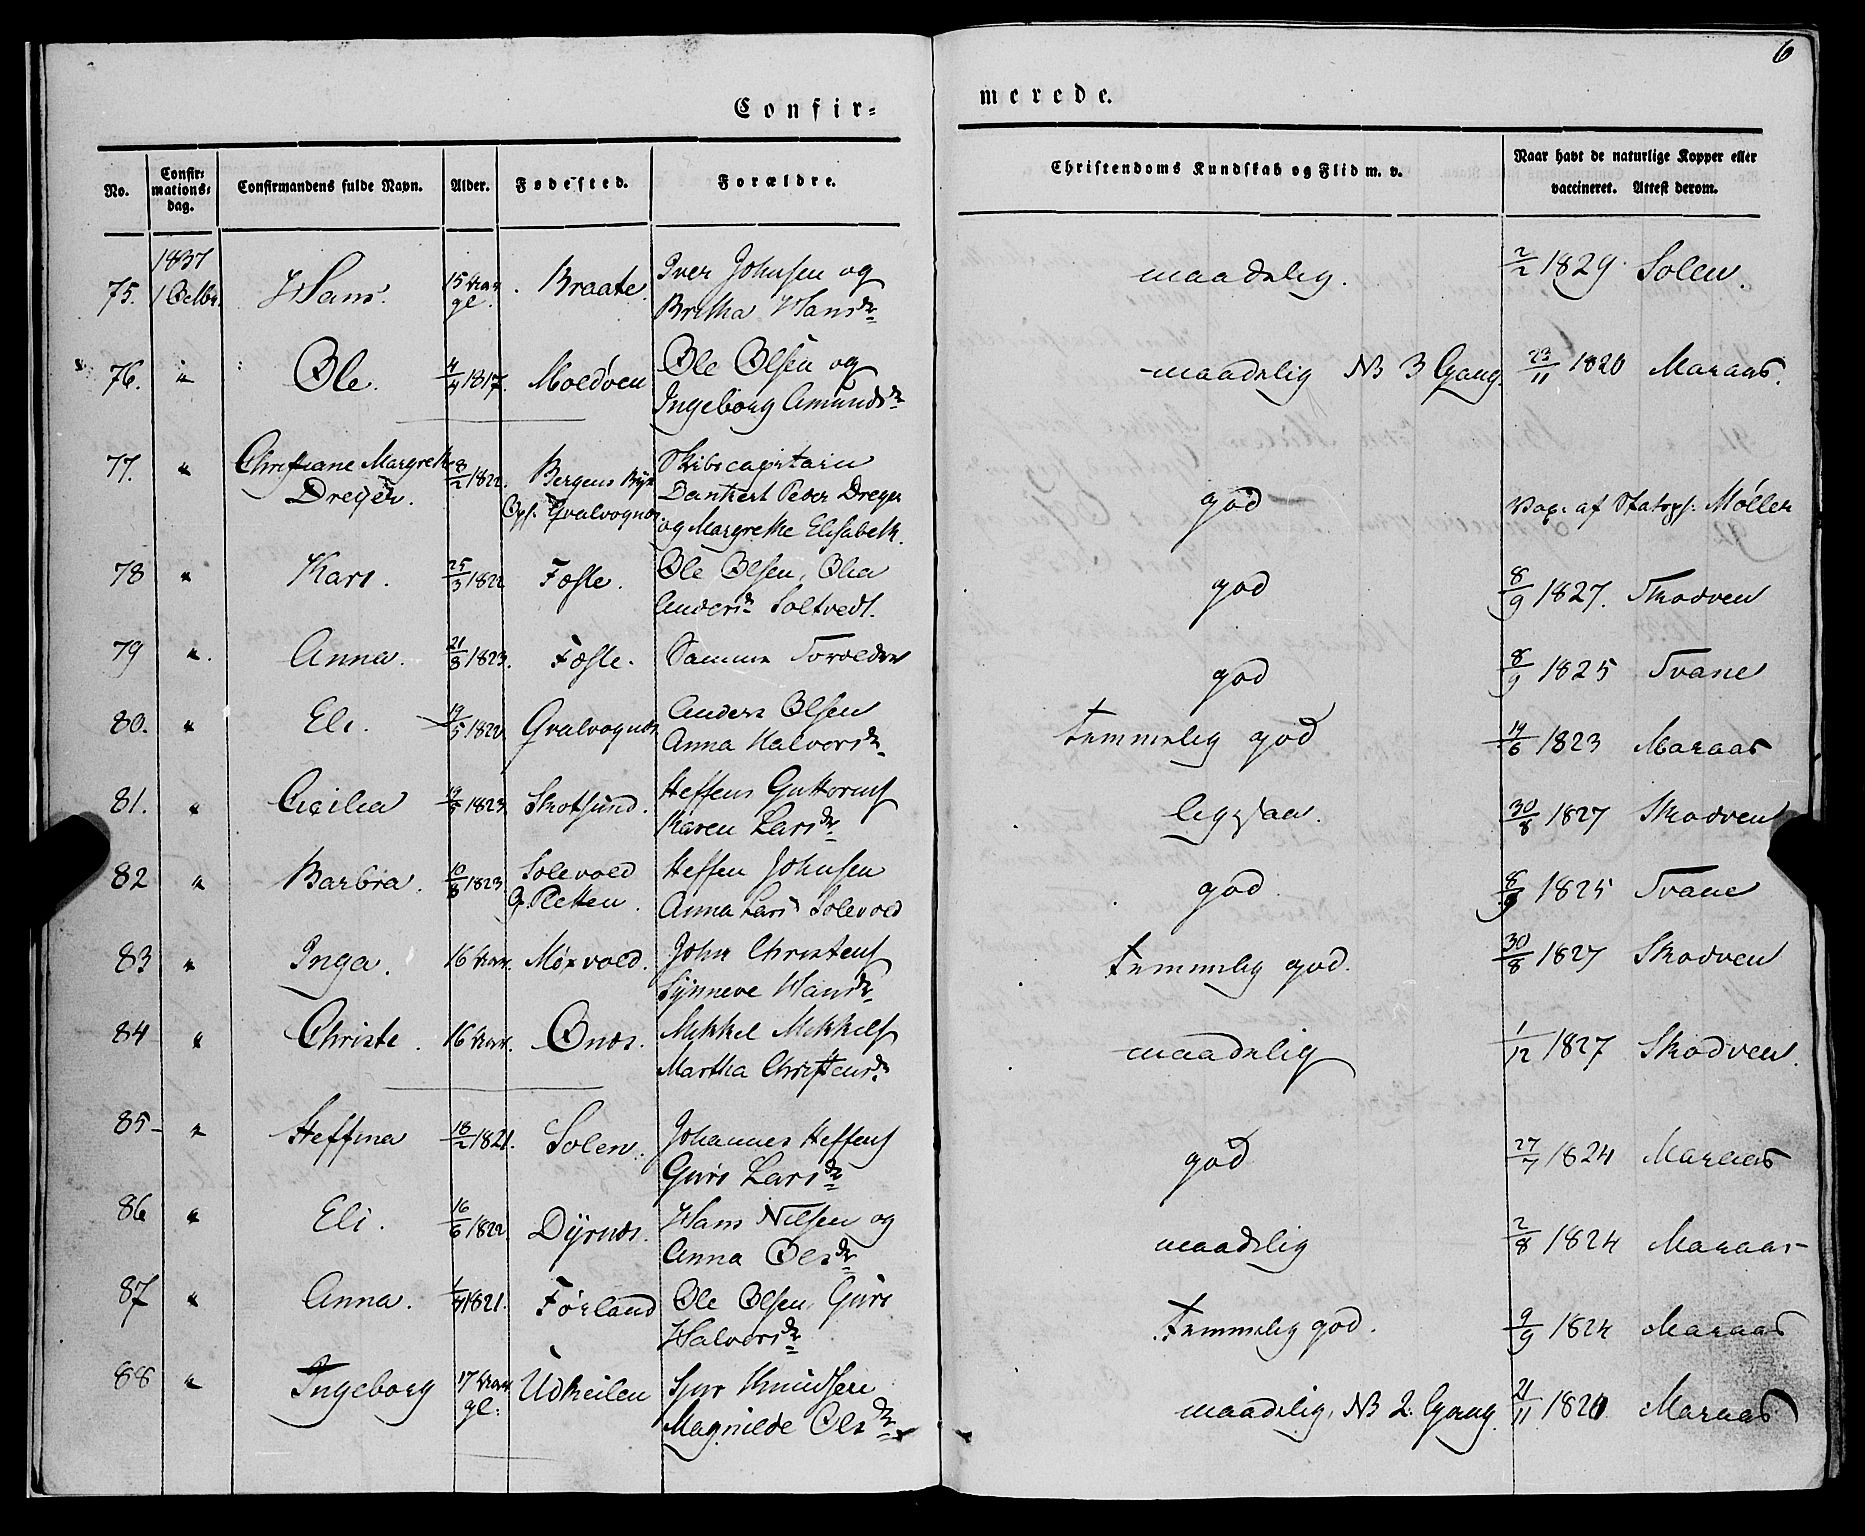 6
Confir=
merede.
No.
Confir=
mations=
dag.
Confirmandens fulde Navn.
Alder.
Fødested.
Forældre.
Christendoms Kundskab og Flid m. v.
Naar havt de naturlige Kopper eller
vaccineret. Attest derom.
1837
75. 1 Octbr. Hans. 15 Aar gl. Braate. Iver Johnsen og
Britha Hansdr
maadelig. 2/2 1829. Solen.
76. " Ole. 4/4 1817. Moldøen Ole Olsen og
Ingeborg Amundsdr
maadelig NB 3 Gang. 23/11 1820 Maraas.
77. " Christiane Margrethe
Dreyer. 8/2 1822. Bergens
Gvalvognæs Skibscapitain
Dankert Peter Dreyer
og Margrethe Elisabeth.
god Vax. af Møller
78 " Kari. 25/3 1822 Fosse. Ole Olsen, Olia
Andersdr Soltvedt.
god 8/9 1827. Skodven
79 ". Anna. 21/8 1823. Fosse. Samme Forældre
god 8/9 1825 Tvane
80. " Eli. 19/5 1820 Gvalvognæs Anders Olsen
Anna Halvorsdr
temmelig god 14/6 1823 Maraas
81. " Cicilia 19/8 1823. Skotsund. Steffens Guttorms
Karen Larsdr
30/8 1827 Skodven
82 " Barbra. 10/8 1823. Solevold
Pletten. Steffen Johnsen
Anna Lars Solevold
god. 8/9 1825 Tvane
83 " Inga. 16 Aar. Moxvold. John Christens
Synneve Hansdr
temmelig god. 30/8 1827 Skodven
84 " Christe. 16 Aar. Onæs. Mikkel Mikkels
Martha Christensdr.
maadelig 1/12 1827 Skodven.
85 " Steffina 18/2 1821. Solen. Johannes Steffens
Guri Larsdr
god 27/7 1824 Maraas
86 " Eli. 16/6 1822 Dyrnæs. Hans Nilsen og
Anna Olsdr
maadelig 2/8 1824 Maraas
87 " Anna. 1/4 1821. Førland Ole Olsen, Guri
Halvorsdr
temmelig god. 9/9 1824 Maraas
88 " Ingeborg 17 Aar gl. Udkeilen Sjur Knudsen
Magnilde Olsdr
maadelig, NB 2. Gang. 21/11 1820 Maraas